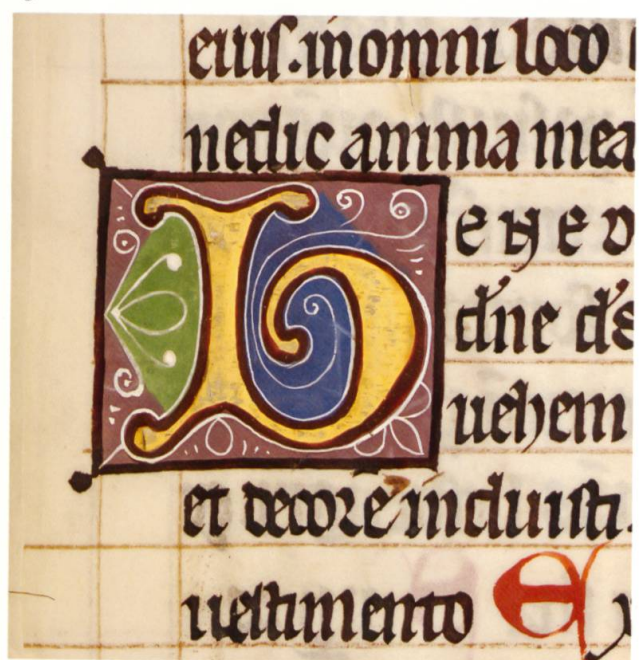 eius. in omni loco
nedic anima mea
B ENED
dn̄e ds̄
uehem
et decore induisti.
uestimento E